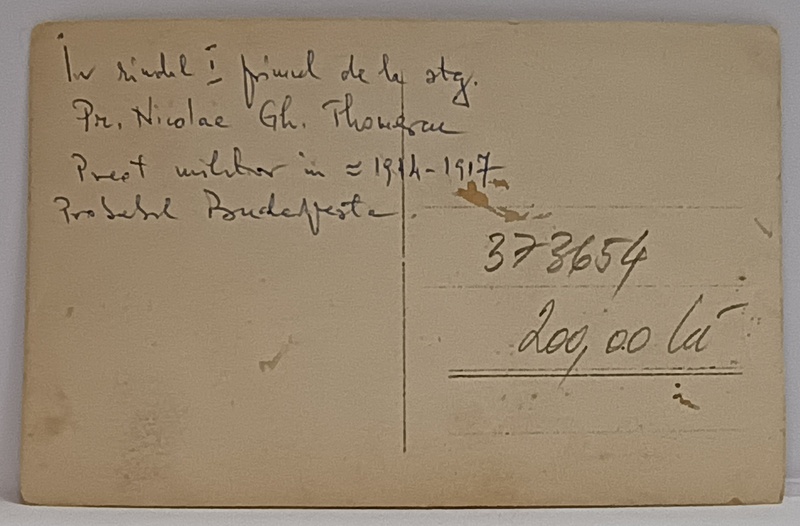 În rîndul I primul de la stg.
Pr. Nicolae Gh. Thomescu
Preot militar in ≈ 1914-1917
Probabil Budapesta.
373654
200,00 lei